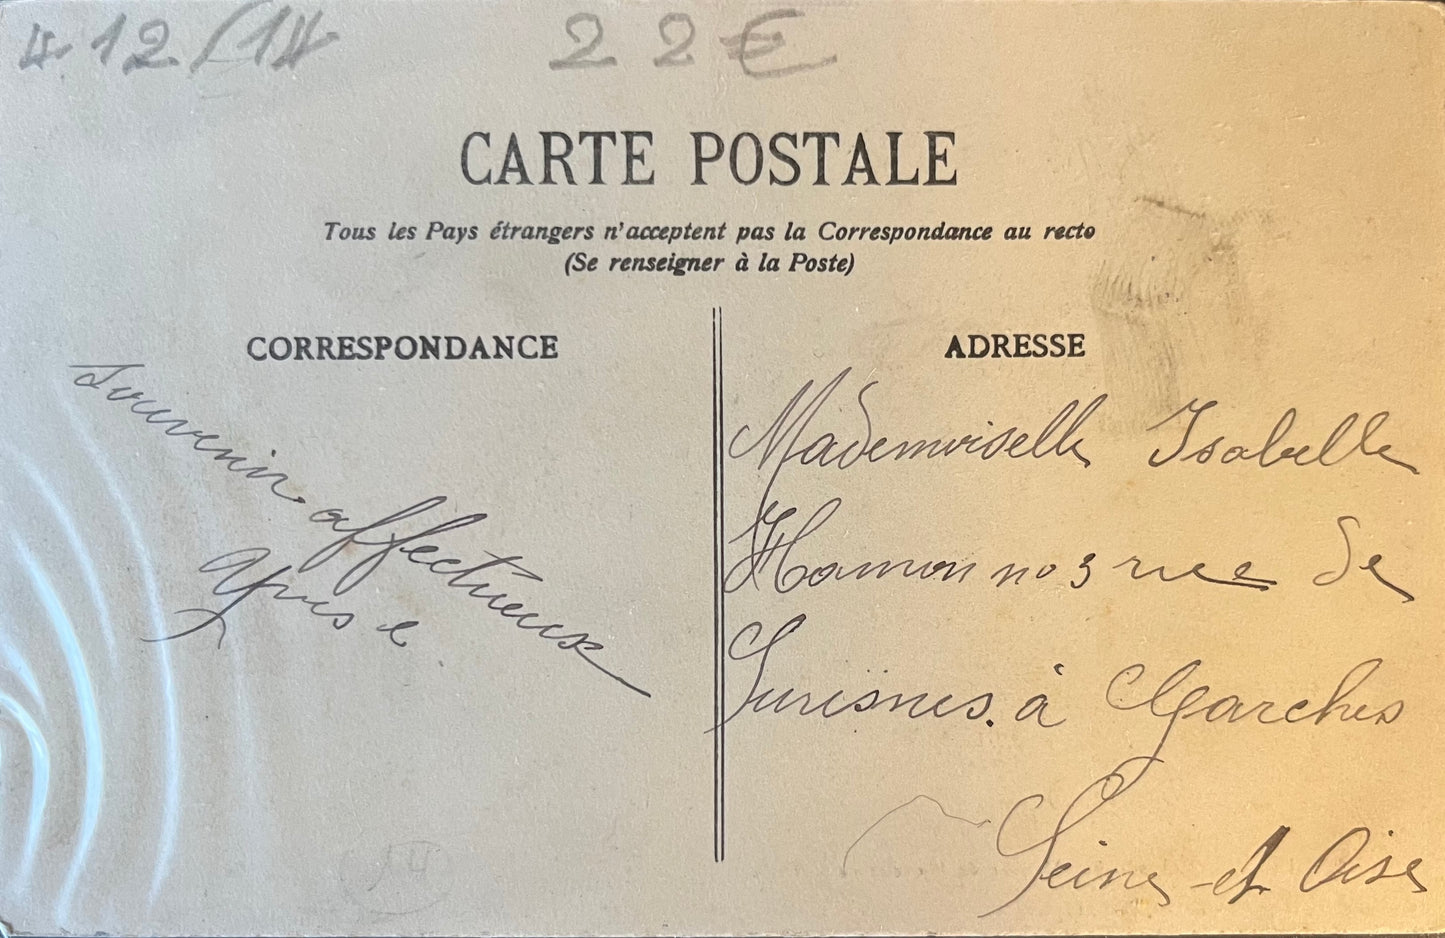 4.12/14 22€
CARTE POSTALE
Tous les Pays étrangers n'acceptent pas la Correspondance au recto
(Se renseigner à la Poste)
CORRESPONDANCE
Souvenir affectueux
Yvus e.
ADRESSE
Mademoiselle Isabelle
Hamon no 3 rue de
Suresnes. à Garches
Seine et Oise
14